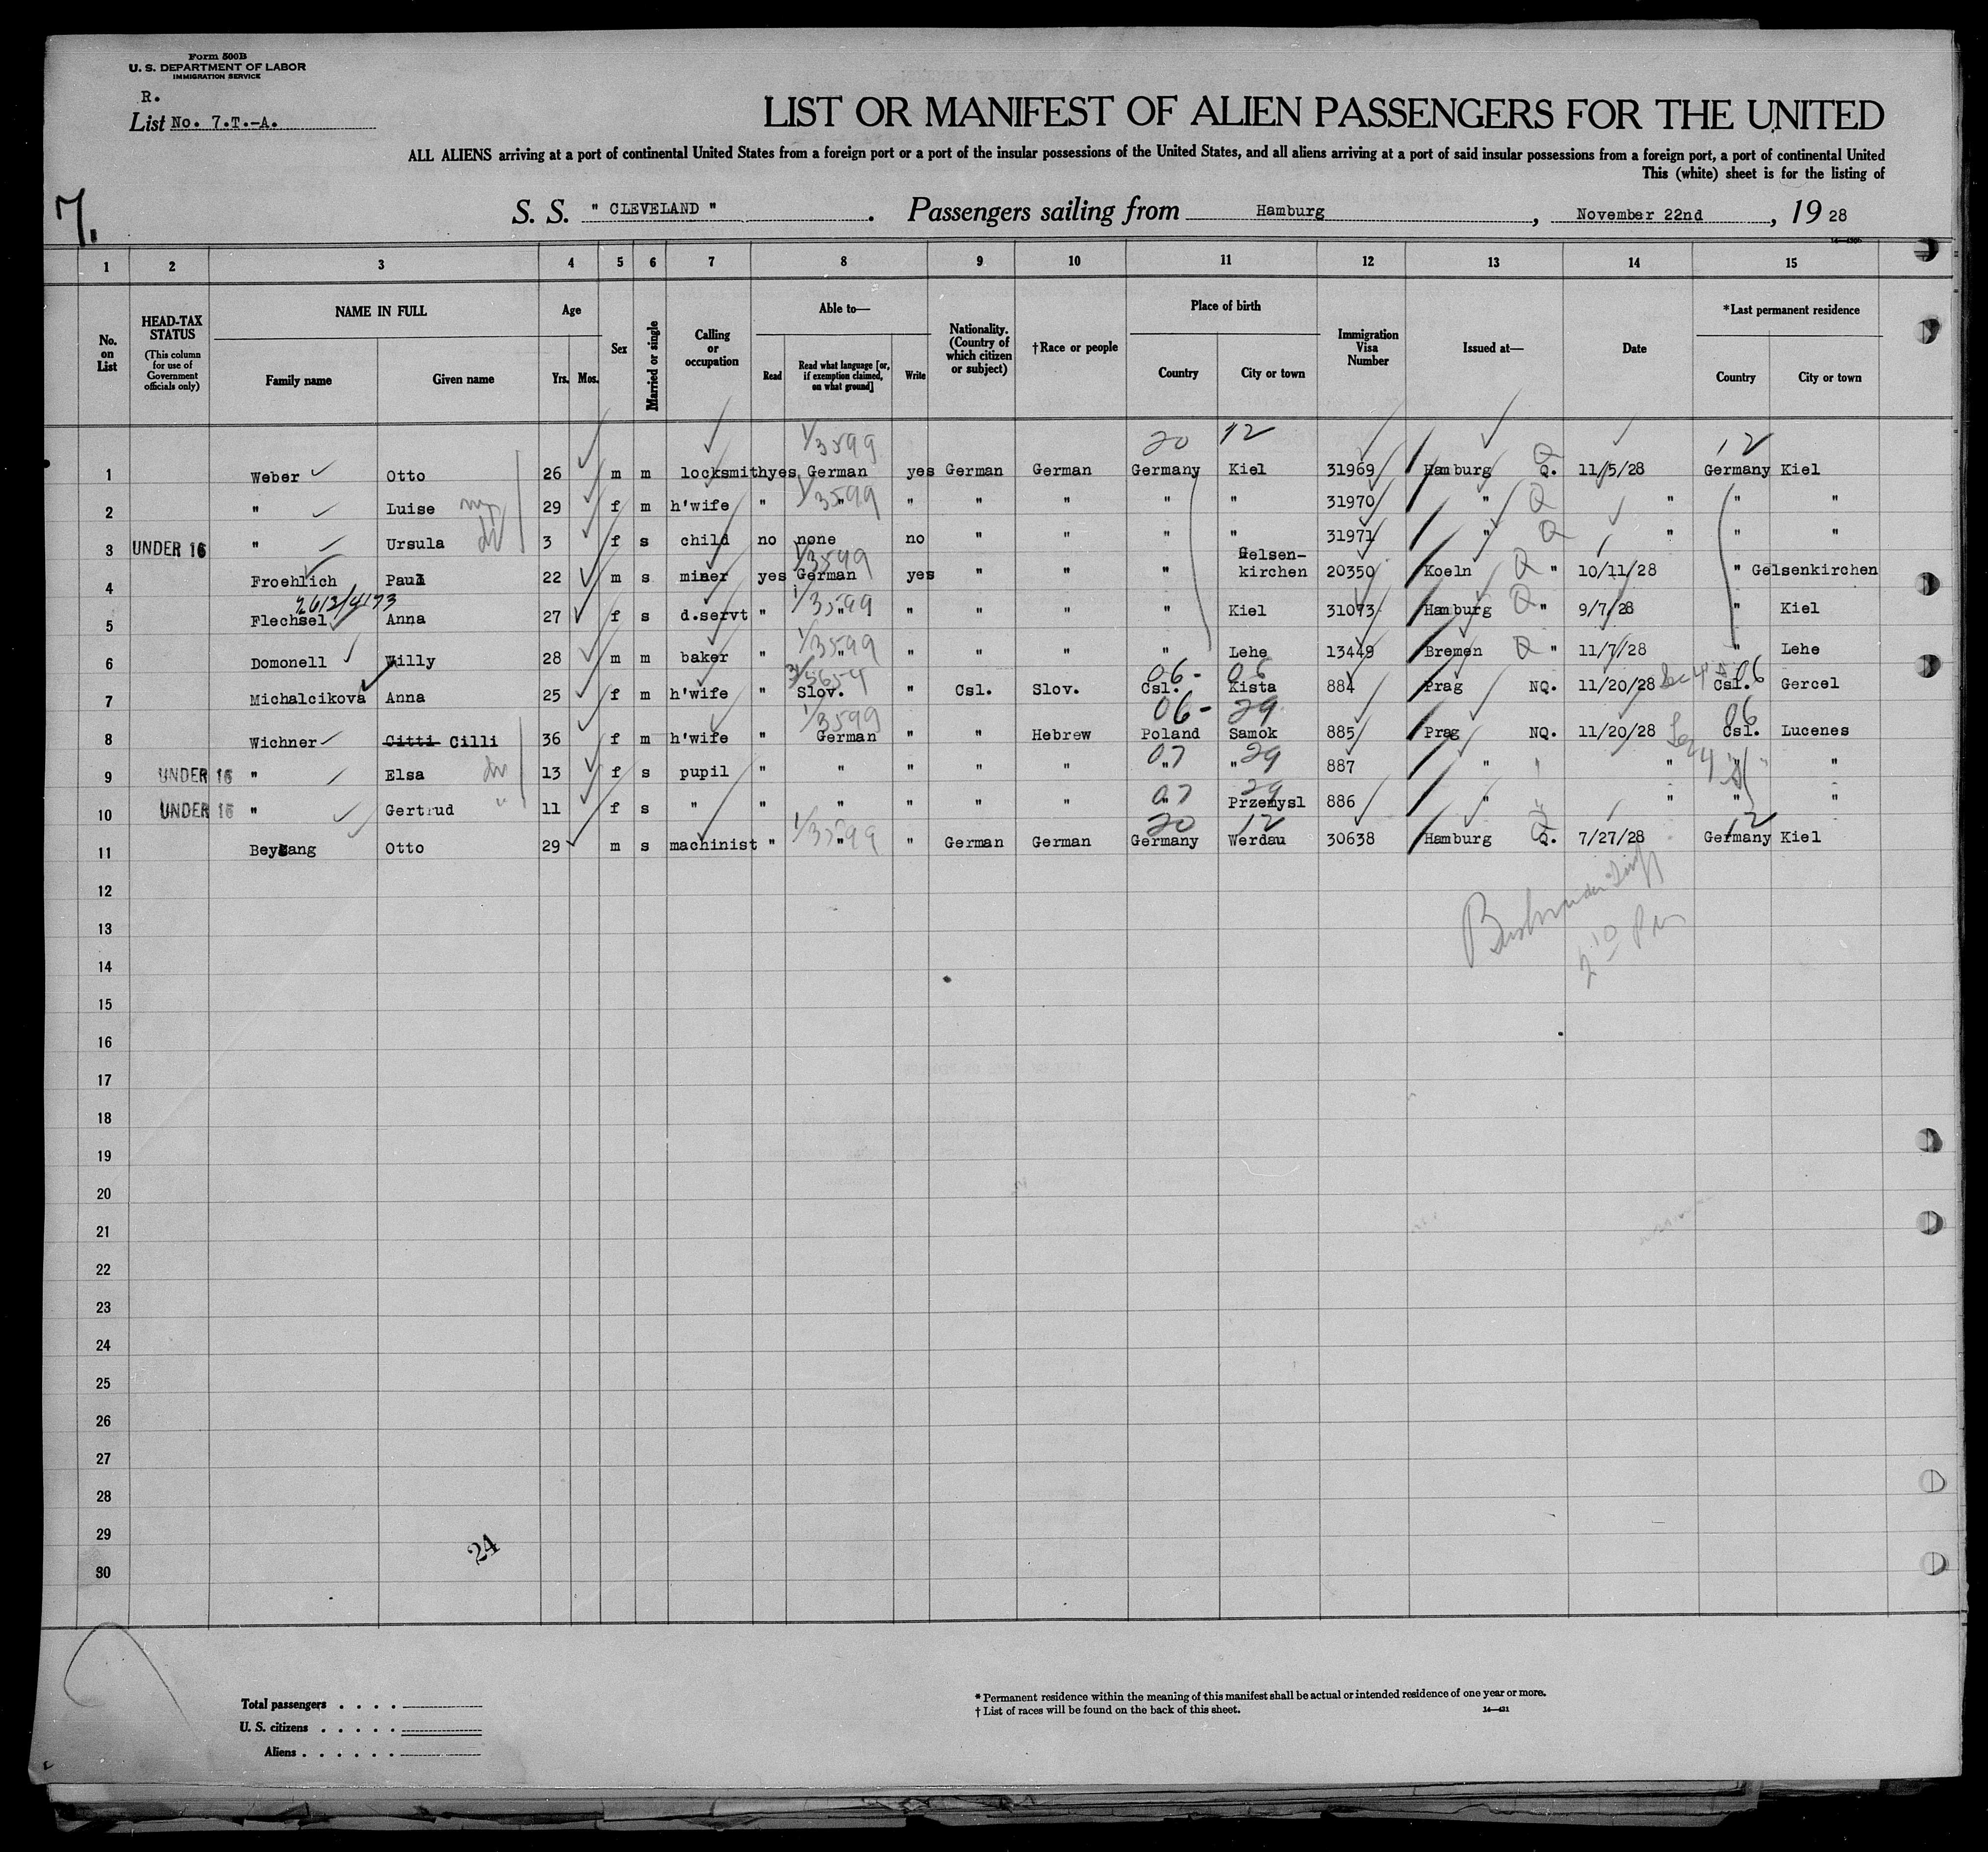 Form 500B
U. S. DEPARTMENT OF LABOR
IMMIGRATION SERVICE
R.
List No. 7.T.-A.
LIST OR MANIFEST OF ALIEN PASSENGERS FOR THE UNITED
ALL ALIENS arriving at a port of continental United States from a foreign port or a port of the insular possessions of the United States, and all aliens arriving at a port of said insular possessions from a foreign port, a port of continental United
This (white) sheet is for the listing of
7.
S. S. " CLEVELAND " . Passengers sailing from Hamburg , November 22nd , 19 28
1 2 3 4 5 6 7 8 9 10 11 12 13 14 15
No. on List
HEAD-TAX STATUS (This column for use of Government officials only)
NAME IN FULL
Family name Given name
Age
Yrs. Mos.
Sex
Married or single
Calling or occupation
Able to—
Read Read what language [or, if exemption claimed, on what ground] Write
Nationality. (Country of which citizen or subject)
†Race or people
Place of birth
Country City or town
Immigration Visa Number
Issued at—
Date
*Last permanent residence
Country City or town
1/3599 20 12 12
1 Weber Otto 26 m m locksmith yes German yes German German Germany Kiel 31969 Hamburg Q. 11/5/28 Germany Kiel
2 " Luise 29 f m h'wife " 1/3599 " " " " " " 31970 " Q " " "
3 UNDER 16 " Ursula 3 f s child no none no " " " " 31971 " Q " " "
4 Froehlich Paul 22 m s miner yes 1/3599 German yes " " " Gelsen-
kirchen 20350 Koeln Q " 10/11/28 " Gelsenkirchen
2612/4173
5 Flechsel Anna 27 f s d.servt " 1/3599 " " " " " Kiel 31073 Hamburg Q " 9/7/28 " Kiel
6 Domonell Willy 28 m m baker " 1/3599 " " " " " Lehe 13449 Bremen Q " 11/7/28 " Lehe
06- 06 06
7 Michalcikova Anna 25 f m h'wife " Slov. " Csl. Slov. Csl. Kista 884 Prag NQ. 11/20/28 Csl. Gercel
1/3599 06- 29 06
8 Wichner Citti Cilli 36 f m h'wife " German " " Hebrew Poland Samok 885 Prag NQ. 11/20/28 Csl. Lucenes
07 29
9 UNDER 16 " Elsa 13 f s pupil " " " " " " " 887 " " " "
07 29
10 UNDER 16 " Gertrud " 11 f s " " " " " " " Przemysl 886 " " " "
20 12 12
11 Beygang Otto 29 m s machinist " 1/3599 " " German German Germany Werdau 30638 Hamburg Q. 7/27/28 Germany Kiel
12
13
2 10 Pm
14
15
16
17
18
19
20
21
22
23
24
25
26
27
28
29
24
30
Total passengers . . . .
U. S. citizens . . . . .
Aliens . . . . . .
* Permanent residence within the meaning of this manifest shall be actual or intended residence of one year or more.
† List of races will be found on the back of this sheet.
14—421